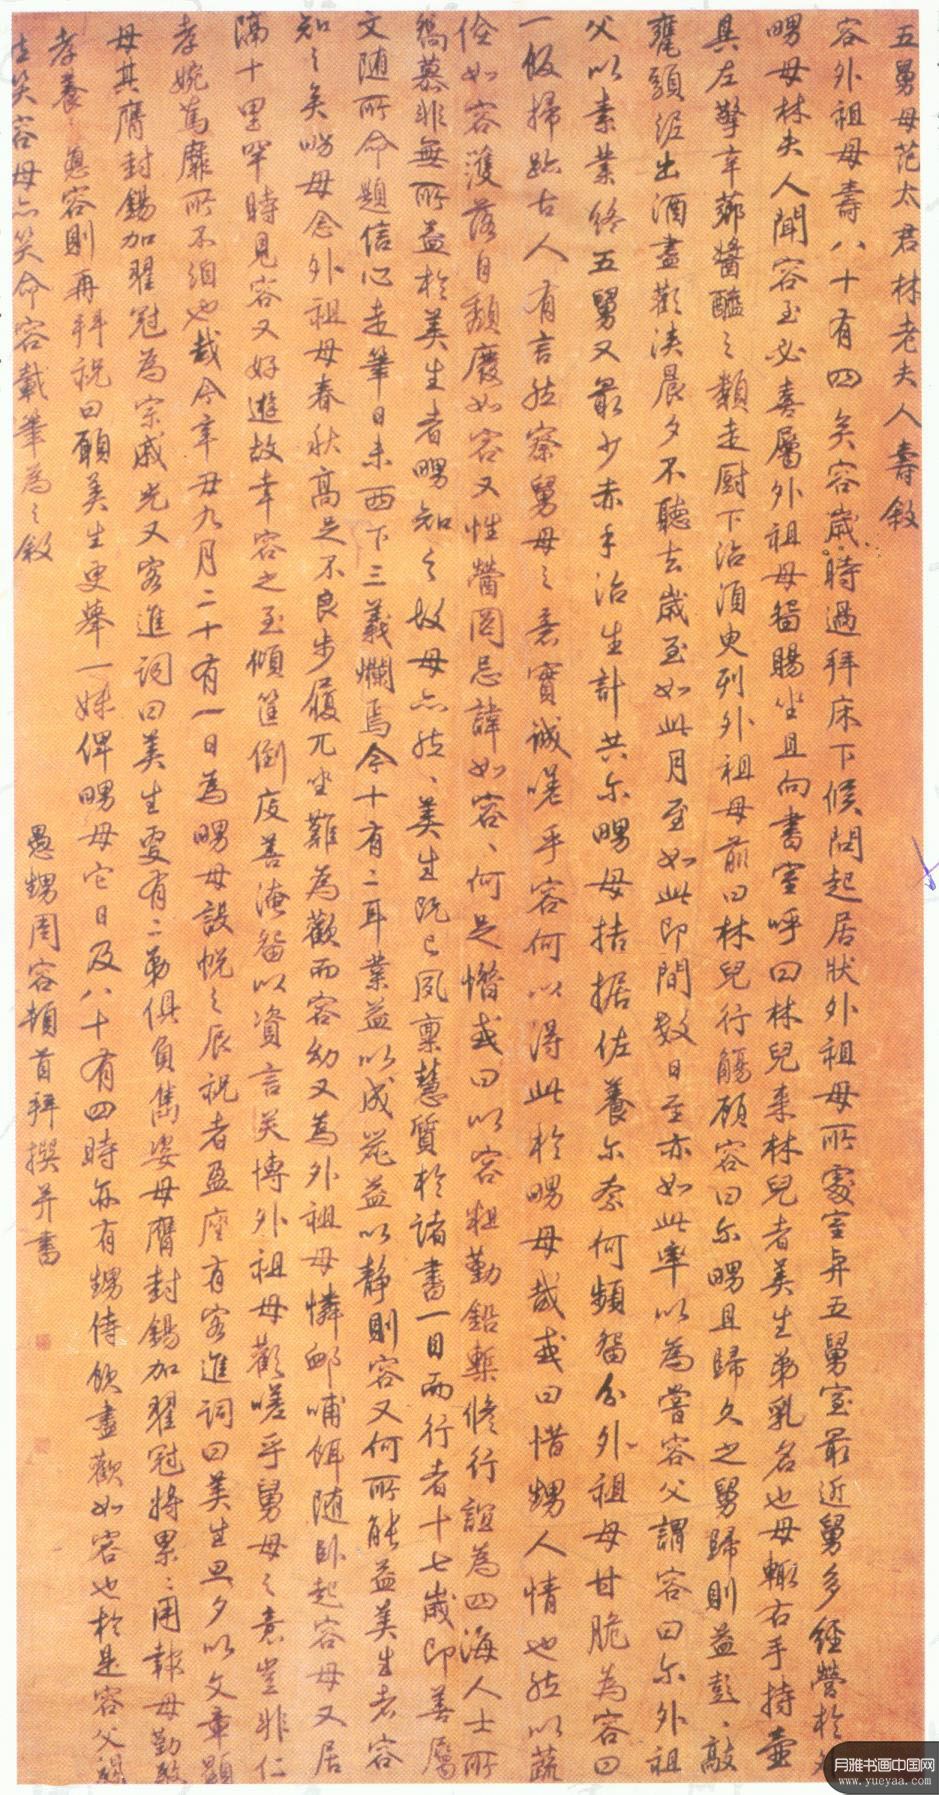 五舅母范太君林老夫人壽敘
容外祖母壽八十有四矣容歲時過拜床下候問起居狀外祖母所處室與五舅室最近舅多經營於外
舅母林夫人聞容至必喜屬外祖母留賜坐且向書室呼曰林兒來林兒者美生弟乳名也母輒右手持壺
具左擎辛薌醬醢之類走厨下治須臾列外祖母前曰林兒行觴顧容曰尔舅且歸久之舅歸則益彭彭敲
甕頭泥出酒盡歡浹晨夕不聽去歲至如此月至如此即間數日至亦如此率以為嘗容父謂容曰尔外祖
父以素業終五舅又最少赤手治生計共尔舅母拮据佐養尔奈何頻留分外祖母甘脆為容曰
一飯掃跡古人有言然察舅母之意實誠嗟乎容何以得此於舅母哉或曰惜甥人情也然以蔬
儉如容濩落自頹廢如容又性嗇罔忌諱如容容何足惜或曰以容粗勤鉛槧修行誼為四海人士所
稱慕非無所益於美生者舅知之故母亦然然美生既已夙禀慧質於諸書一目而行者十七歲即善屬
文随所命題信心走筆日未西下三義爛焉今十有二耳業益以成花益以静則容又何所能益美生者容
知之矣舅母念外祖母春秋高足不良步履兀坐難為歡而容幼又為外祖母憐卹哺餌随卧起容母又居
隔十里罕時見容又好遊故幸容之至傾筐倒庋善淹留以資言笑博外祖母歡嗟乎舅母之意豈非仁
孝婉篤靡所不洎也哉今辛丑九月二十有一日為舅母設帨之辰祝者盈座有客進詞曰美生旦夕以文章顯
母其膺封錫加翟冠為宗戚光又客進詞曰美生更有二弟俱負雋姿母膺封錫加翟冠將累累用報母勤敬
孝養之恩容則再拜祝曰願美生更舉一妹俾舅母它日及八十有四時亦有甥侍飲盡歡如容也於是容父視
生笑容母亦笑命容載筆為之敘
愚甥周容頓首拜撰并書
月雅书画中国网
www.yueyaa.com